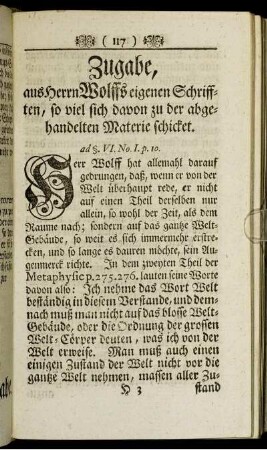 ( 117 )
Zugabe,
aus Herrn Wolffs eigenen Schriff-
ten, so viel sich davon zu der abge-
handelten Materie schicket.
ad §. VI. No. I. p. 10.
Herr Wolff hat allemahl darauf
gedrungen, daß, wenn er von der
Welt überhaupt rede, er nicht
auf einen Theil derselben nur
allein, so wohl der Zeit, als dem
Raume nach; sondern auf das gantze Welt-
Gebäude, so weit es sich immermehr erstre-
cken, und so lange es dauren möchte, sein Au-
genmerck richte. In dem zweyten Theil der
Metaphysic p. 275. 276. lauten seine Worte
davon also: Ich nehme das Wort Welt
beständig in diesem Verstande, und dem-
nach muß man nicht auf das blosse Welt-
Gebäude, oder die Ordnung der grossen
Welt-Cörper deuten, was ich von der
Welt erweise. Man muß auch einen
einigen Zustand der Welt nicht vor die
gantze Welt nehmen, massen aller Zu-
H 3 stand